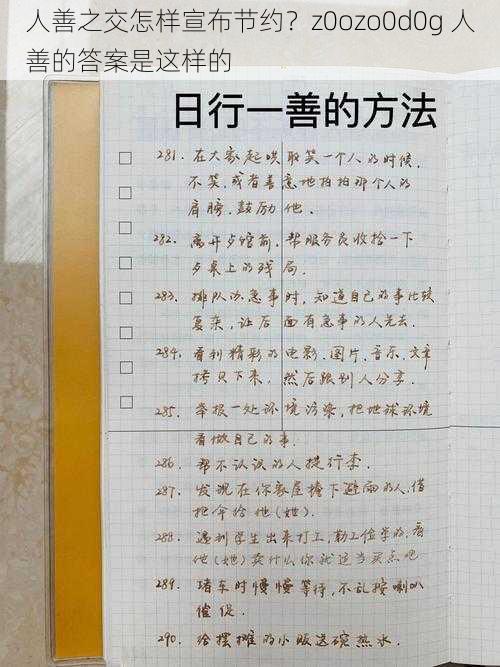 人善之交怎样宣布节约？z0ozo0d0g 人
善的答案是这样的
日行一善的方法
281. 在大家起哄取笑一个人的时候,
不笑,或者善意地拍拍那个人的
肩膀,鼓励他.
282. 离开步馆前,帮服务员收拾一下
步桌上的残局.
283. 排队办急事时,知道自己的事比较
复杂,让后面有急事的人先去.
284. 看到精彩的电影.图片.音乐.文章
拷贝下来,然后跟别人分享.
285. 举报一处环境污染,把地球环境
看做自己的事.
286. 帮不认识的人提行李.
287. 发现在你家屋檐下避雨的人,借
把伞给他(她).
288. 遇到学生出来打工,勤工俭学的,看
他(她)卖什么你就适当买点吧
289. 堵车时慢慢等待,不乱按喇叭
催促.
290. 给摆摊的小贩送碗热水.